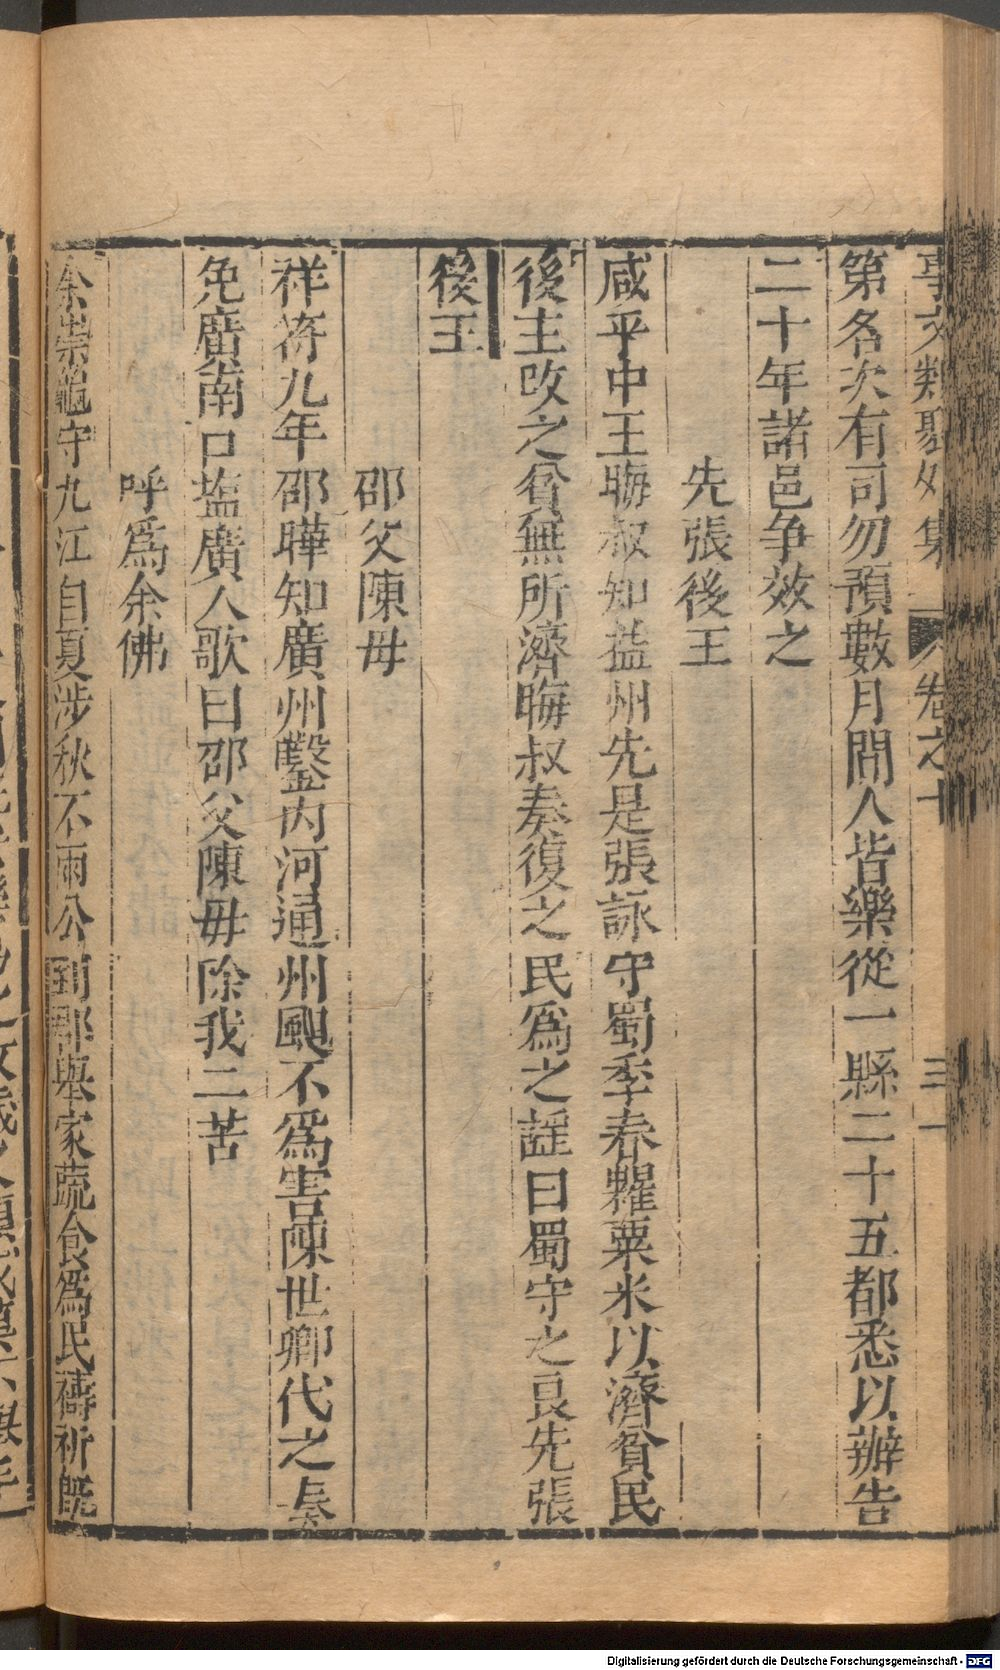 事文類聚外集 卷之十 三一
第名次有司勿預數月間人皆樂從一縣二十五都悉以辦告
二十年諸邑争效之
先張後王
咸平中王晦叔知益州先是張詠守蜀季春糶粟米以濟貧民
後主改之貧無所濟晦叔奏復之民爲之謡曰蜀守之良先張
後王
邵父陳母
祥符九年邵曄知廣州鑿内河通州颶不爲害陳世卿代之奏
免廣南口塩廣人歌曰邵父陳毋除我二苦
呼爲余佛
余崇龜守九江自夏涉秋不雨公到郡舉家蔬食爲民禱祈旣
Digitalisierung gefördert durch die Deutsche Forschungsgemeinschaft - DFG